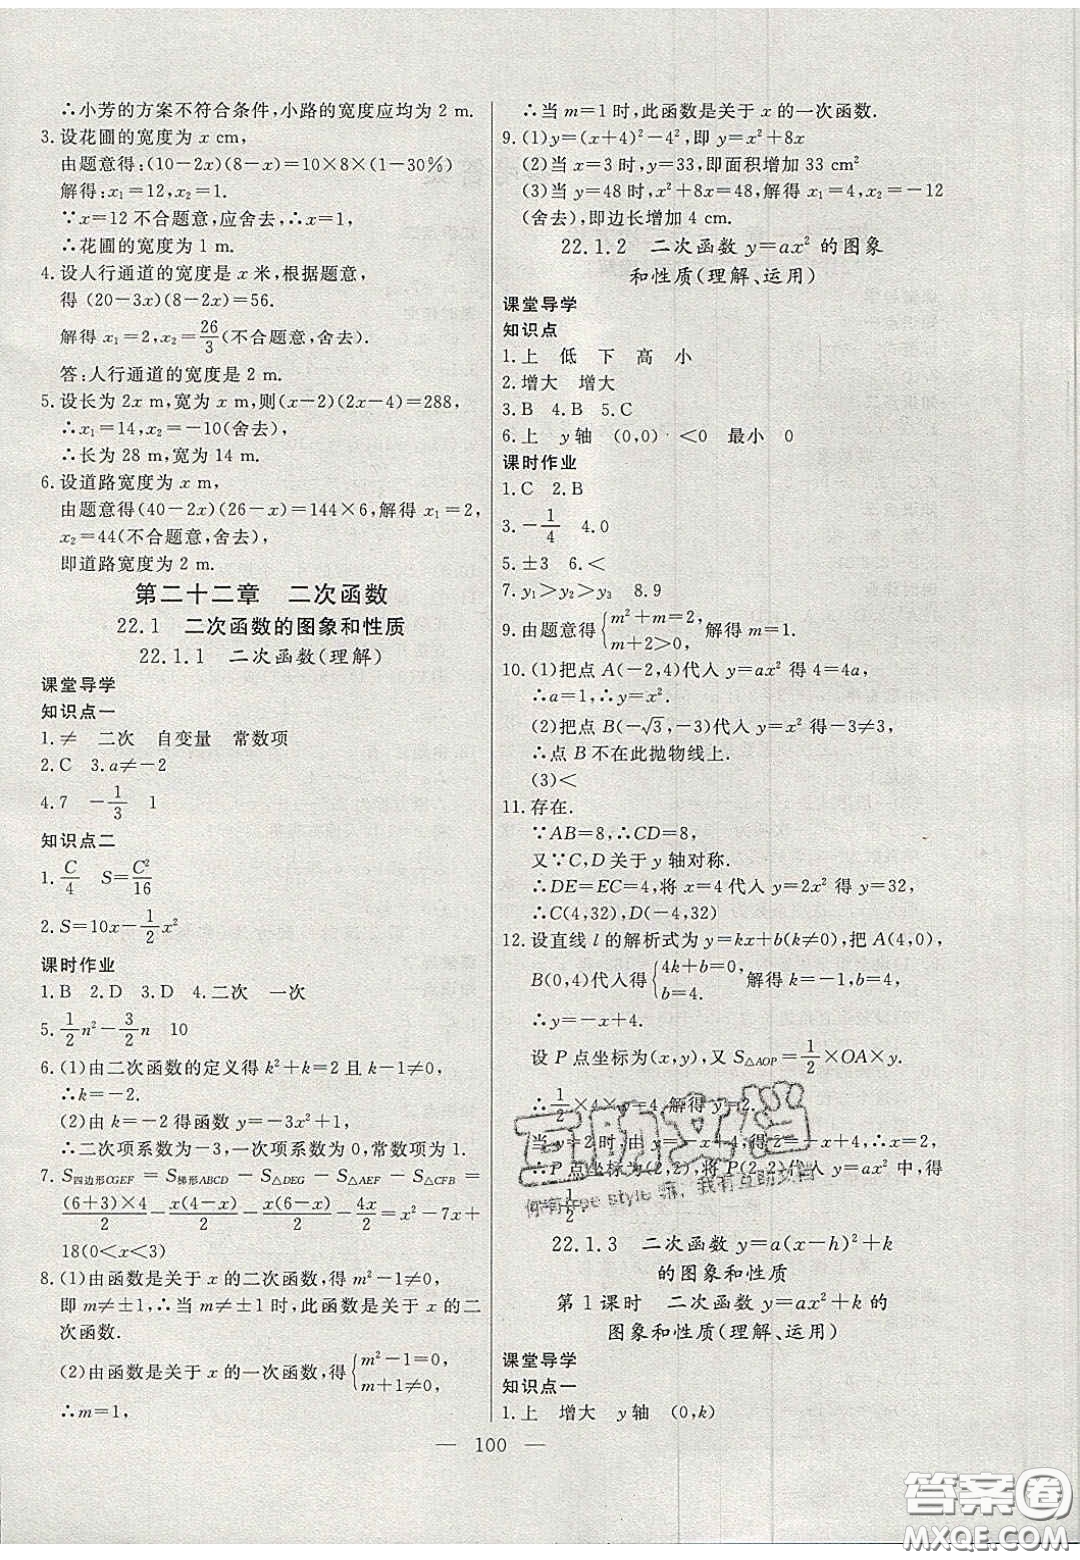 ∴小芳的方案不符合条件,小路的宽度应均为 2 m.
3. 设花圃的宽度为 x cm,
由题意得:(10−2x)(8−x)=10×8×(1−30%)
解得:x₁=12,x₂=1.
∵x=12 不合题意,应舍去,∴x=1,
∴花圃的宽度为 1 m.
4. 设人行通道的宽度是 x 米,根据题意,
得 (20−3x)(8−2x)=56.
解得 x₁=2,x₂=26/3(不合题意,舍去).
答:人行通道的宽度是 2 m.
5. 设长为 2x m,宽为 x m,则(x−2)(2x−4)=288,
∴x₁=14,x₂=−10(舍去),
∴长为 28 m,宽为 14 m.
6. 设道路宽度为 x m,
由题意得(40−2x)(26−x)=144×6,解得 x₁=2,
x₂=44(不合题意,舍去),
即道路宽度为 2 m.
第二十二章 二次函数
22.1 二次函数的图象和性质
22.1.1 二次函数(理解)
课堂导学
知识点一
1. ≠ 二次 自变量 常数项
2. C 3. a≠−2
4. 7 −1/3 1
知识点二
1. C/4 S=C²/16
2. S=10x−1/2x²
课时作业
1. B 2. D 3. D 4. 二次 一次
5. 1/2n²−3/2n 10
6. (1)由二次函数的定义得 k²+k=2 且 k−1≠0,
∴k=−2.
(2)由 k=−2 得函数 y=−3x²+1,
∴二次项系数为−3,一次项系数为 0,常数项为 1.
7. S四边形CGEF = S梯形ABCD − S△DEG − S△AEF − S△CFB =
(6+3)×4/2 − x(4−x)/2 − x(6−x)/2 − 4x/2 = x²−7x+
18(0<x<3)
8. (1)由函数是关于 x 的二次函数,得 m²−1≠0,
即 m≠±1,∴当 m≠±1 时,此函数是关于 x 的二
次函数.
(2)由函数是关于 x 的一次函数,得{m²−1=0,
m+1≠0,
∴m=1,
∴当 m=1 时,此函数是关于 x 的一次函数.
9. (1)y=(x+4)²−4²,即 y=x²+8x
(2)当 x=3 时,y=33,即面积增加 33 cm²
(3)当 y=48 时,x²+8x=48,解得 x₁=4,x₂=−12
(舍去),即边长增加 4 cm.
22.1.2 二次函数 y=ax² 的图象
和性质(理解、运用)
课堂导学
知识点
1. 上 低 下 高 小
2. 增大 增大
3. B 4. B 5. C
6. 上 y 轴 (0,0) <0 最小 0
课时作业
1. C 2. B
3. −1/4 4. 0
5. ±3 6. <
7. y₁>y₂>y₃ 8. 9
9. 由题意得{m²+m=2,
m+2>0, 解得 m=1.
10. (1)把点 A(−2,4)代入 y=ax² 得 4=4a,
∴a=1,∴y=x².
(2)把点 B(−√3,−3)代入 y=x² 得−3≠3,
∴点 B 不在此抛物线上.
(3)<
11. 存在.
∵AB=8,∴CD=8,
又∵C,D 关于 y 轴对称.
∴DE=EC=4,将 x=4 代入 y=2x² 得 y=32,
∴C(4,32),D(−4,32)
12. 设直线 l 的解析式为 y=kx+b(k≠0),把 A(4,0),
B(0,4)代入得{4k+b=0,
b=4. 解得 k=−1,b=4.
∴y=−x+4.
设 P 点坐标为(x,y),又 S△AOP=1/2×OA×y.
∴1/2×4×y=4,解得 y=2.
当 y=2 时,由 y=−x+4,得 2=−x+4,∴x=2,
∴P 点坐标为(2,2),将 P(2,2)代入 y=ax² 中,得
1/2.
22.1.3 二次函数 y=a(x−h)²+k
的图象和性质
第 1 课时 二次函数 y=ax²+k 的
图象和性质(理解、运用)
课堂导学
知识点一
1. 上 增大 y 轴 (0,k)
— 100 —
互助文档
答案圈
MXQE.COM